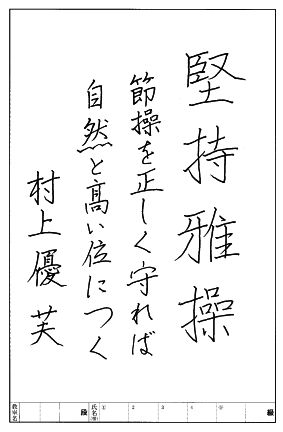 堅持雅操
節操を正しく守れば
自然と高い位につく
村上優芙
級
⑤
4
3
2
①
氏名
段
教室名